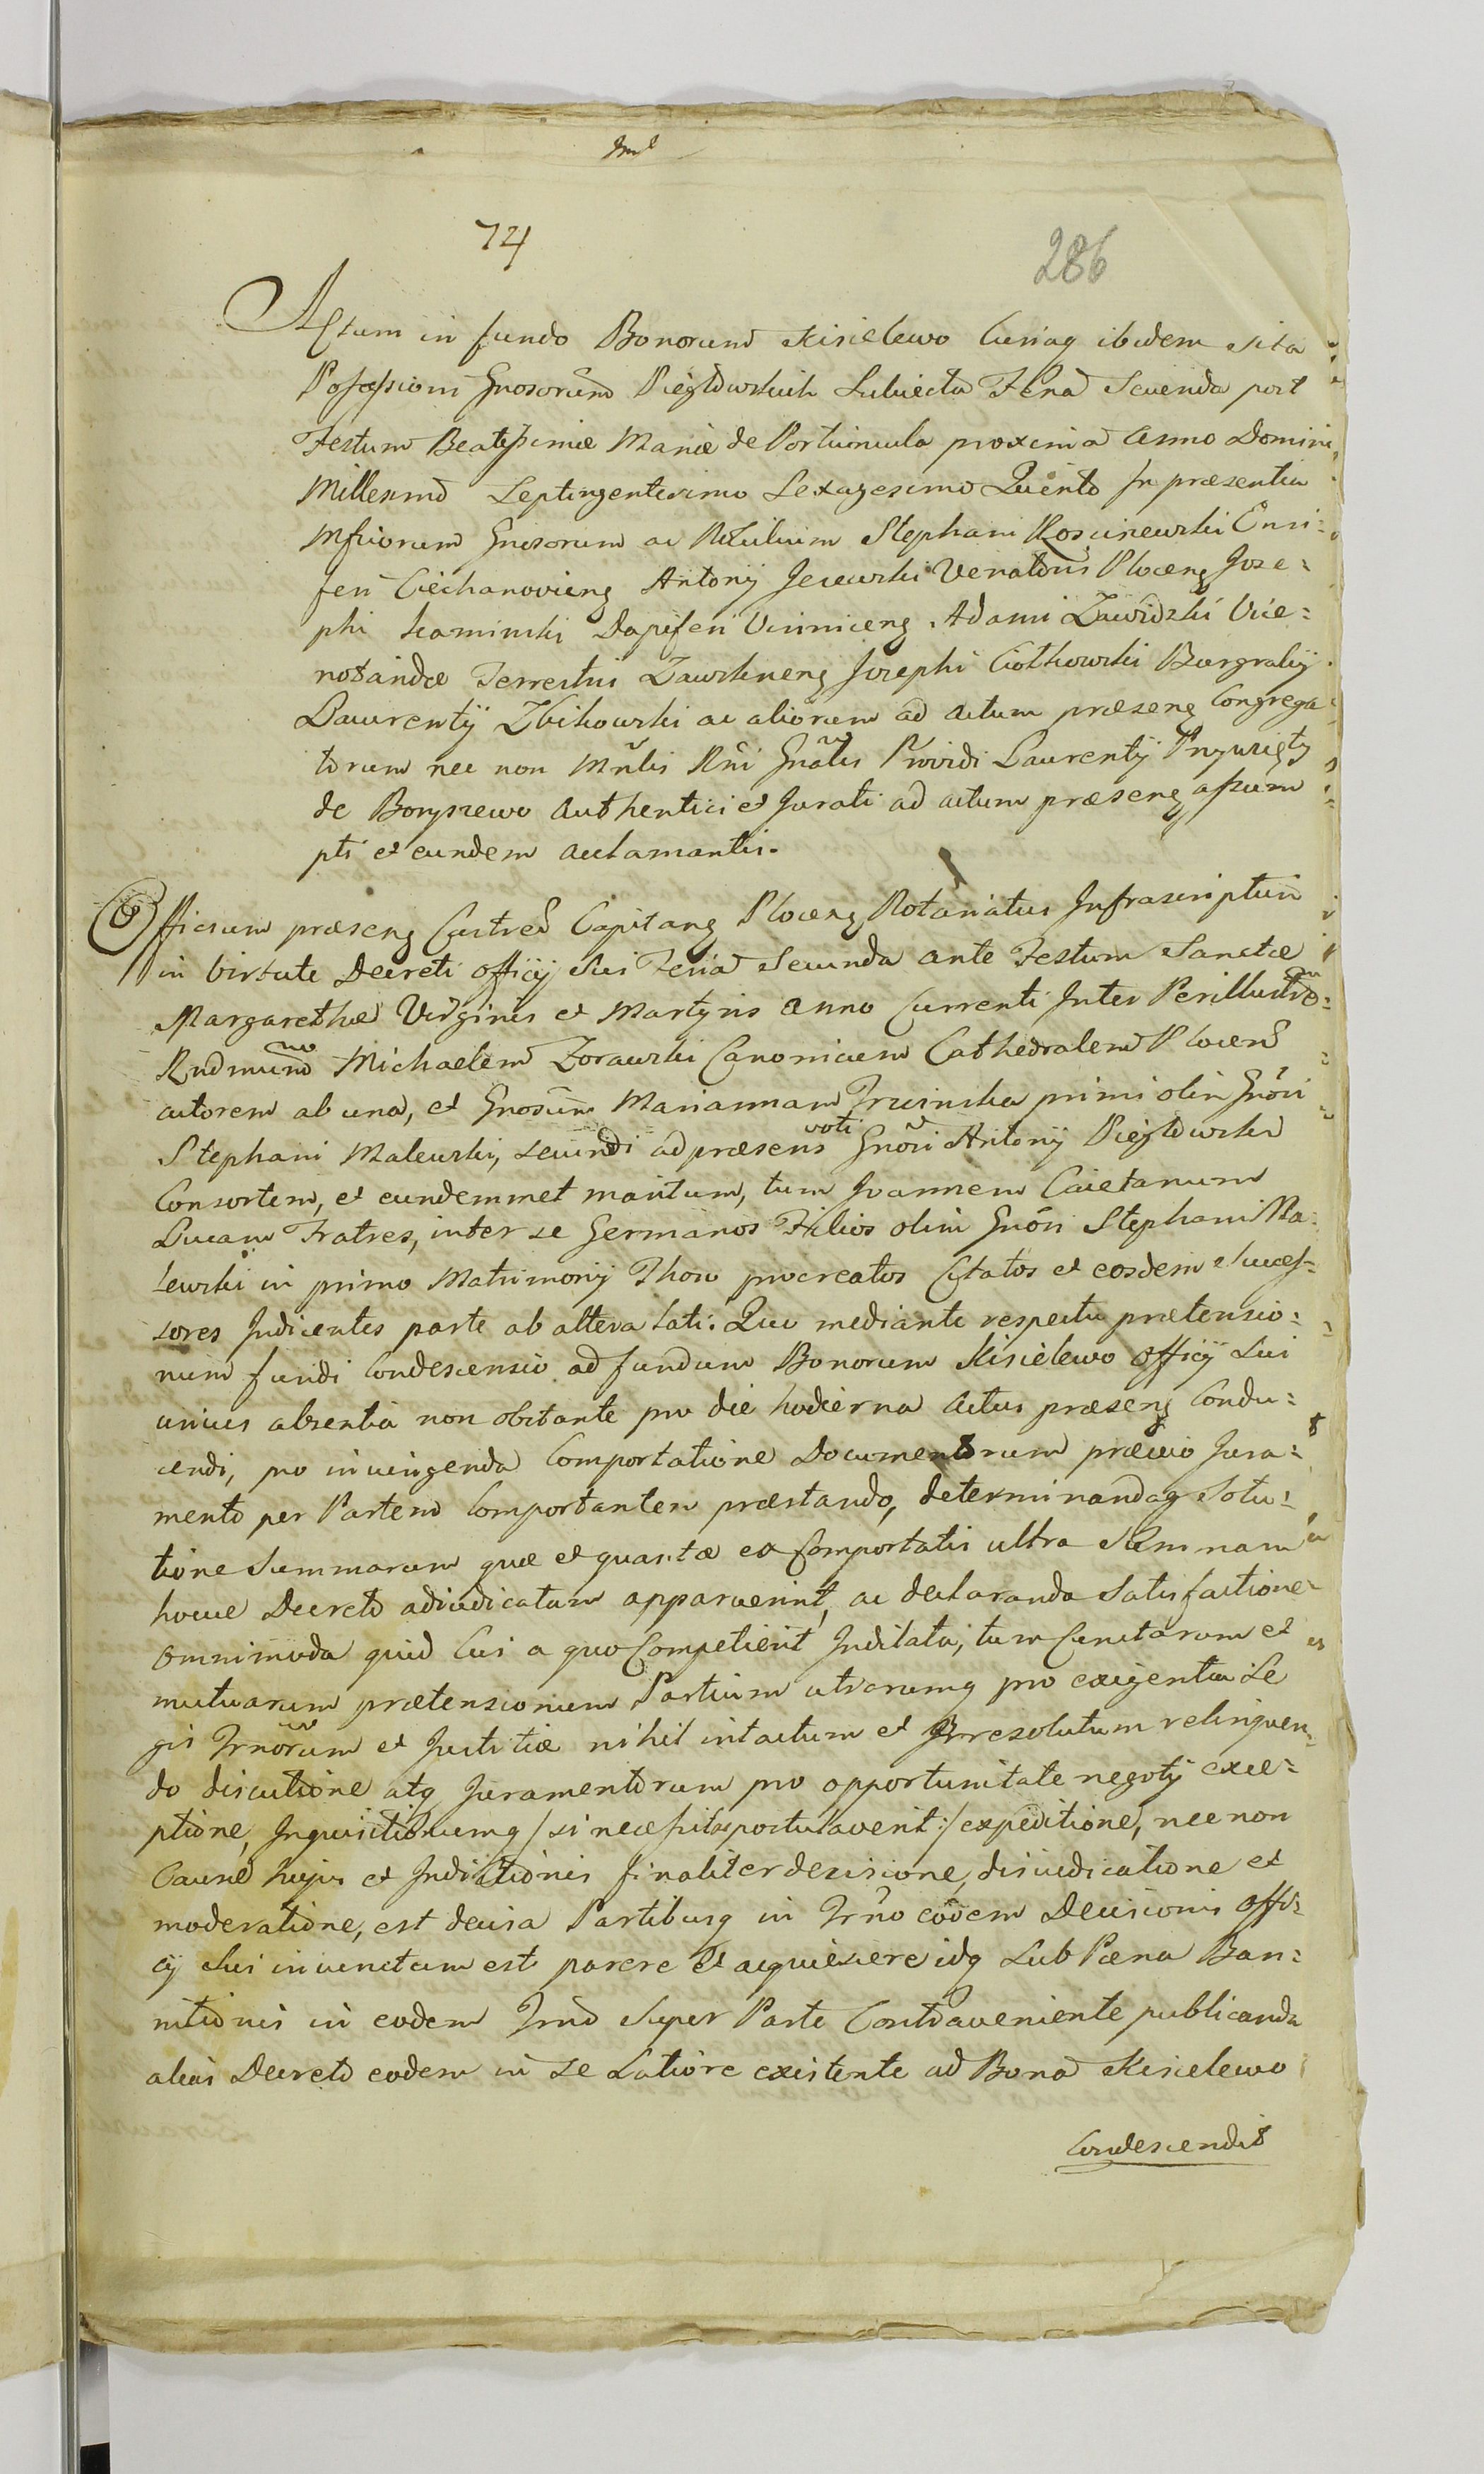 74
286
Actum in fundo Bonorum Kisielewo Curiaq ibidem sita
Possessioni Gnosorum Piegłowskich Subiecta Feria Secunda post
Festum Beatissimæ Mariæ de Portiuncula proxima Anno Domini
Millesimo Septingentesimo Sexagesimo Quinto In præsentia
Mficorum Gnosorum ac Nobilium Stephani Rosciszewski Ensi=
feri Ciechanovieng Antonij Jezewski Venatoris Ploceng Joze=
phi Kaminski Dapiferi Vinniceng Adami Zawidzki Vice=
notandæ Terrestris Zawskrneng Josephi Ciołkowski Burgrabij
Laurentij Zbikowski ac aliorum ad actum præseng Congrega
torum nec non Mrlis Rni Gnalis Providi Laurentij
de Boryszewo Authentici et Jurati ad actum præseng assum
pti et eundem acclamantis.
Officium præseng Castreñ Capitang Ploceng Notariatus Infrascriptum
in Virtute Decreti Officij Sui Feria Secunda ante Festum Sanctæ
Margarethæ Virginis et Martyris anno Currenti Inter Perillustrem
Rndmum Michaelem Zorawski Canonicum Cathedralem Ploceñ
actorem ab una, et Gnosam Mariannam Trzcinska primi olim Gnosi
Stephani Malewski, secundi ad præsens voti Gnosi Antonij Piegłowski
Consortem, et eundemmet maritum, tum Joannem Caietanum
Lucam Fratres, inter se Germanos Filios olim Gnosi Stephani Ma=
lewski in primo Matrimonij Thoro procreatos Citatos et eosdem Succes=
sores Judicentes parte ab altera lati: Quo mediante respectu prætensio=
num fundi Condescensio ad fundum Bonorum Kisielewo Officij Sui
unius absentia non obstante pro die hodierna Actus præseng Condu=
cendi, pro iniungenda Comportatione Documentorum prævio Jura=
mento per Partem Comportantem præstando, determinandaq Solu=
tione Summarum quæ et quantæ ex Comportatis ultra Summam
hocce Decreto adiudicatam apparuerint, ac declaranda Satisfactione
omnimoda quid Cui a quo Competierit Indilata, tum Cunctarum et
mutuarum prætensionum Partium utrarumq pro exigentia Le
gis Trnorum et Justitiæ nihil intactum et Irresolutum relinquen=
do discutione atq Juramentorum pro opportunitate negotij exce=
ptione, Inquisitionumq /: si necessitas postulaverit :/ expeditione, nec non
Causæ hujus et Indictionis finaliter decisione, disiudicatione et
moderatione, est decisa Partibusq in Trno eodem Decisioni Offi=
cij Sui iniunctum est parere et acquiescere idq Sub Pæna Ban=
nitionis in eodem Trno Super Parte Contraveniente publicanda
alias Decreto eodem in se Latiore existente ad Bona Kisielewo
Condescendit